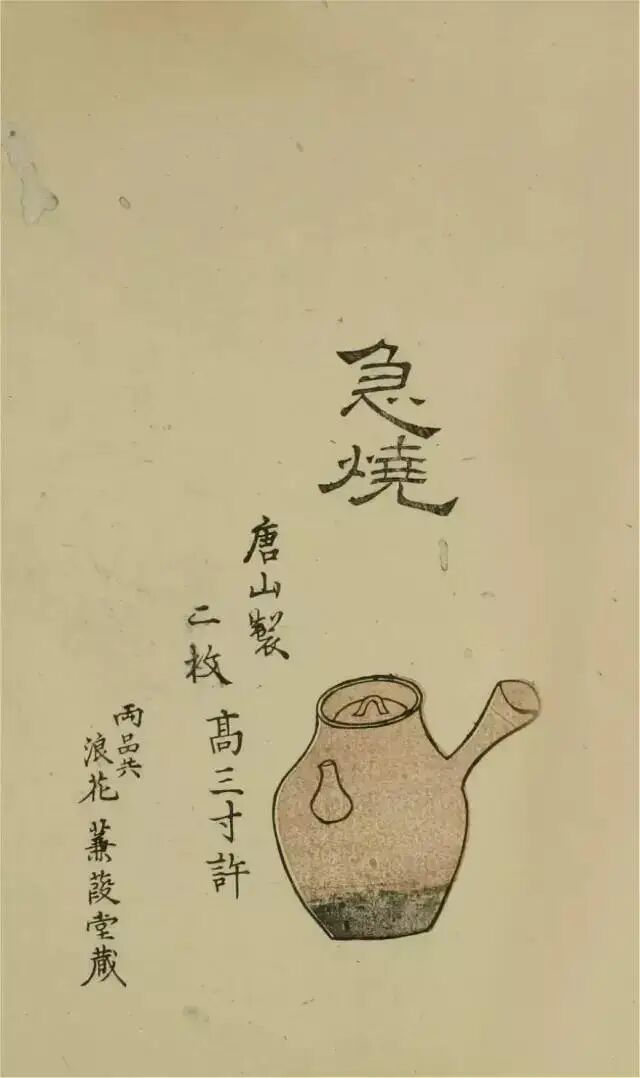 急燒
唐山製
二枚
高三寸許
兩品共
浪花 蒹葭堂藏